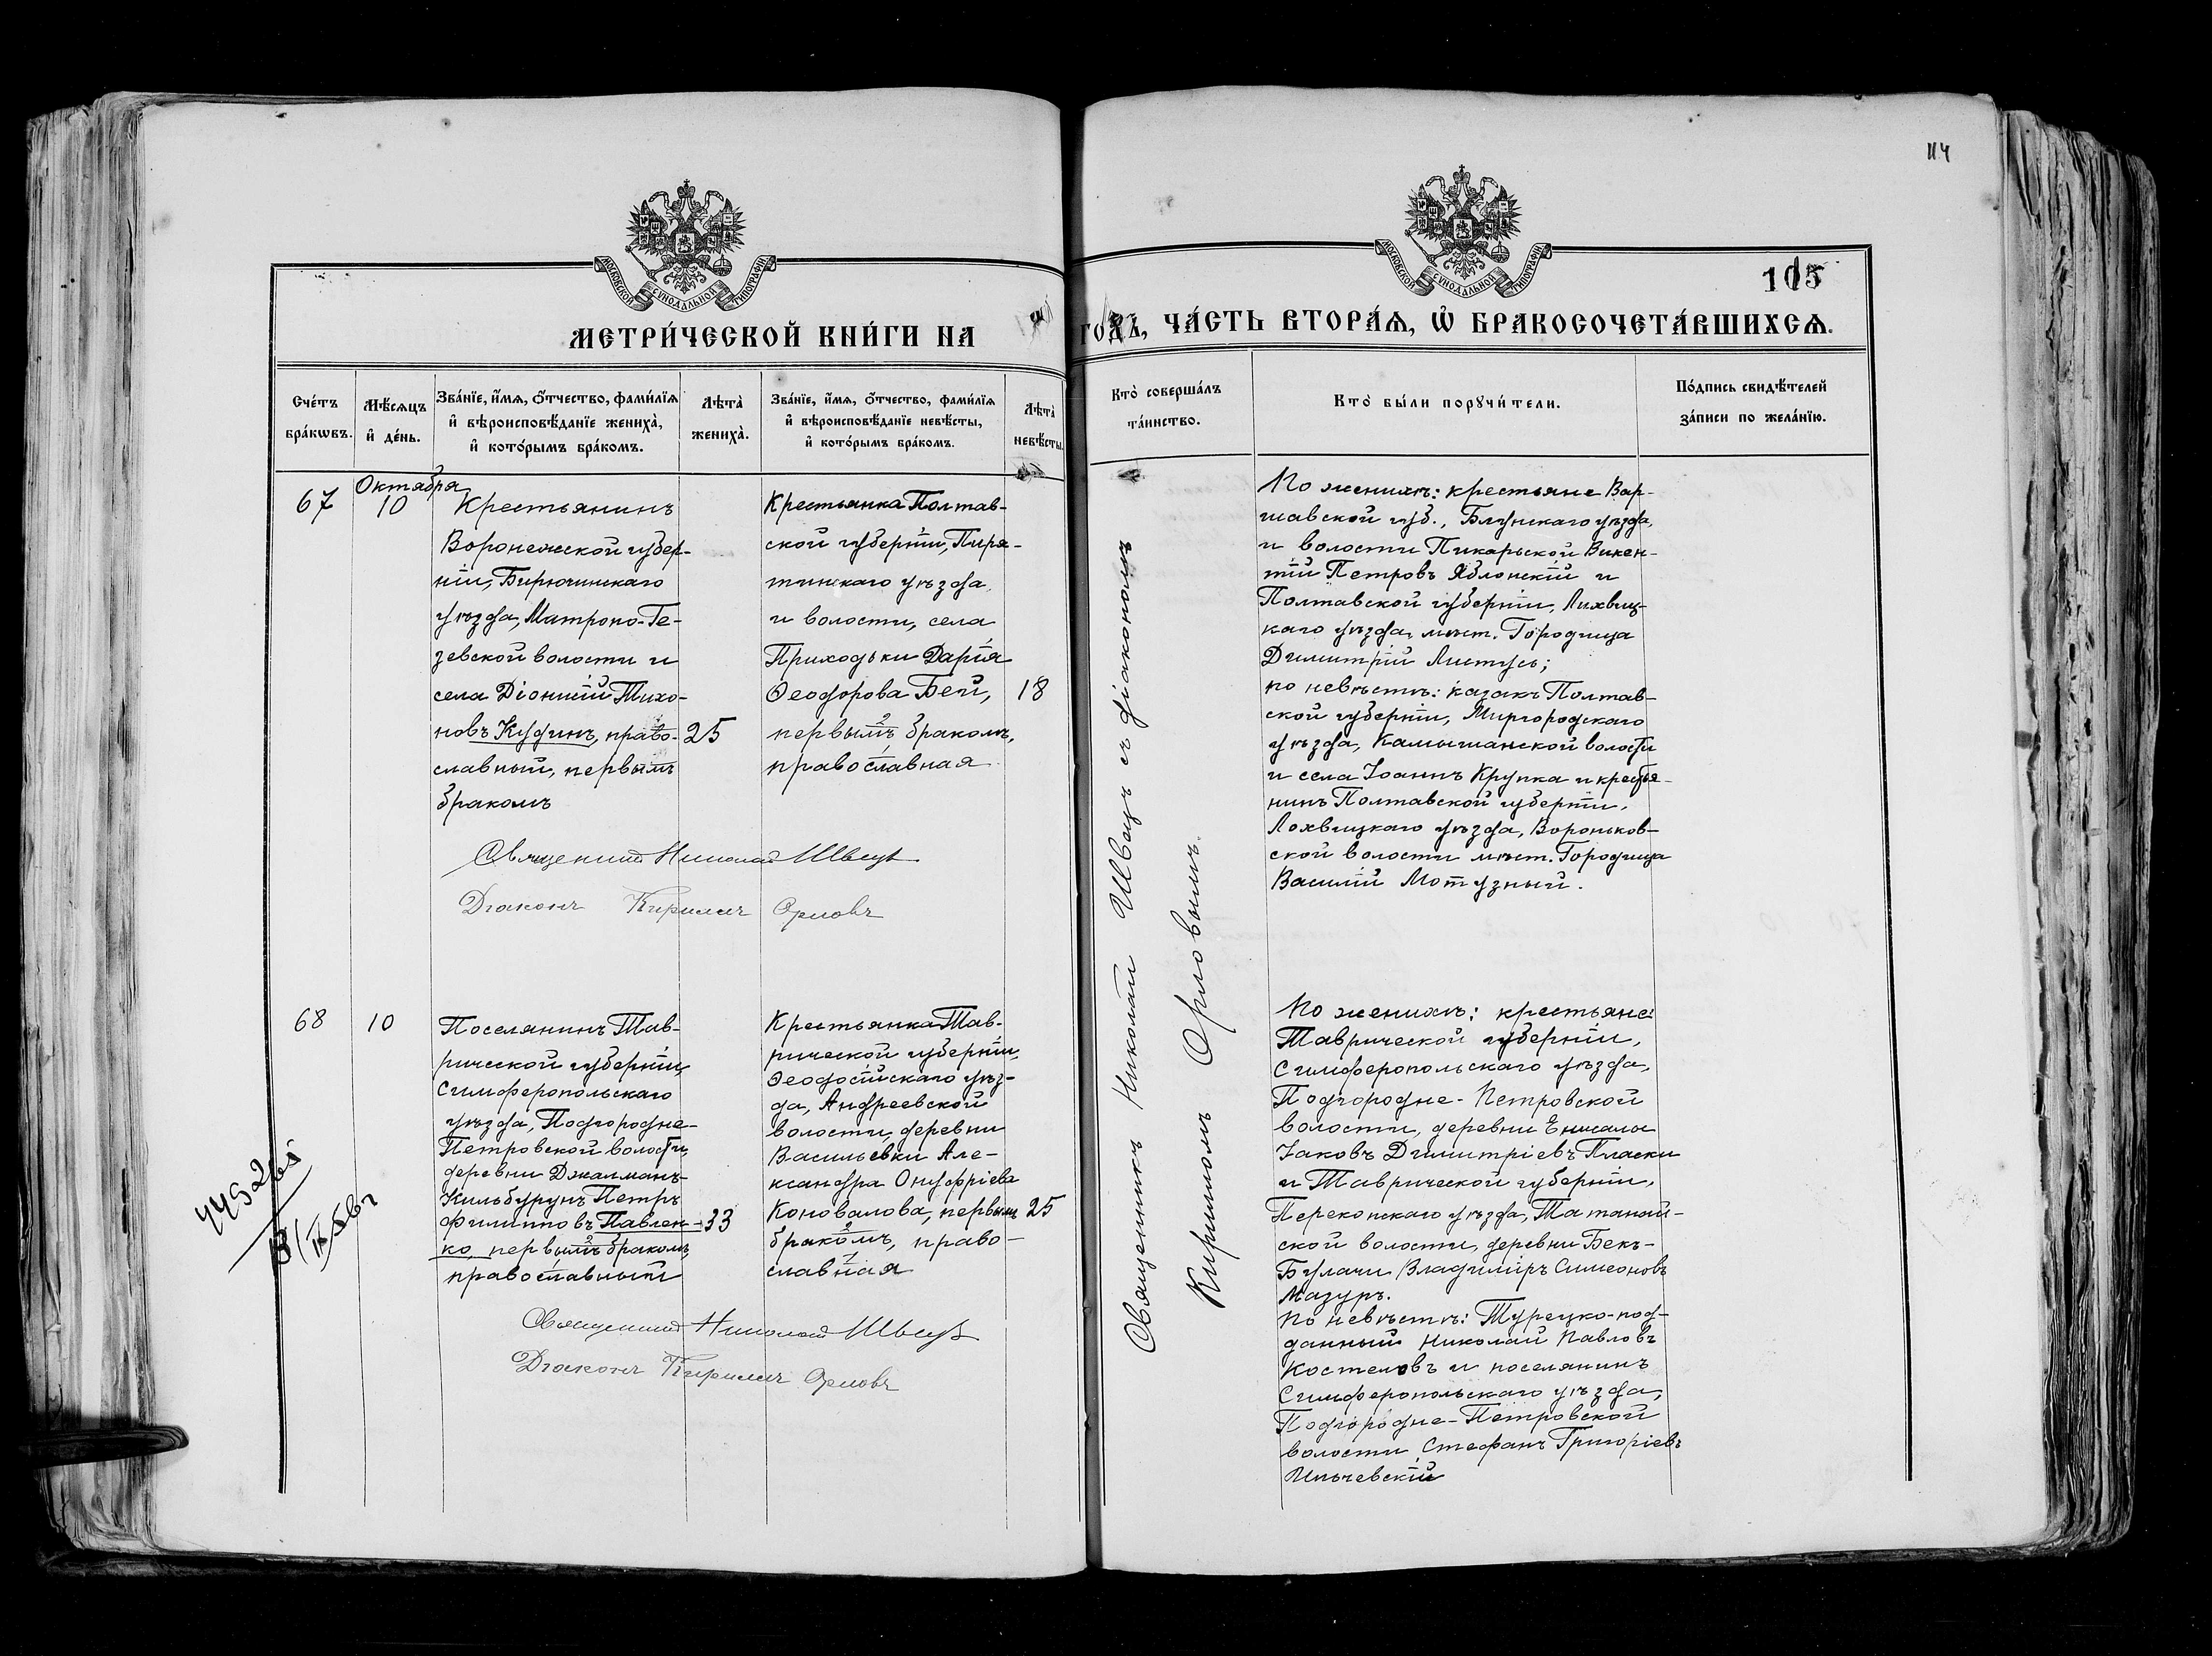 114
105
МОСКОВСКОЙ СѴНОДАЛЬНОЙ ТИПОГРАФІИ
МОСКОВСКОЙ СѴНОДАЛЬНОЙ ТИПОГРАФІИ
МЕТРИ́ЧЕСКОЙ КНИ́ГИ НА
ГОДЪ, ЧА́СТЬ ВТОРА́Я, Ѽ БРАКОСОЧЕТА́ВШИХСЯ.
Сче́тъ бра́кѡвъ.
Мѣ́сяцъ и҆ де́нь.
Зва́нїе, и҆́мя, ѻ҆́тчество, фами́лїя
и҆ вѣроисповѣ́данїе жениха̀,
и҆ кото́рымъ бра́комъ.
Лѣта̀ жениха̀.
Зва́нїе, и҆́мя, ѻ҆́тчество, фами́лїя
и҆ вѣроисповѣ́данїе невѣ́сты,
и҆ кото́рымъ бра́комъ.
Лѣта̀ невѣ́сты.
Кто̀ соверша́лъ
та́инство.
Кто̀ бы́ли порꙋчи́тели.
По́дпись свидѣ́телей
за́писи по жела́нїю.
Октября
67
10
Крестьянинъ
Воронежской губер-
ніи, Бирюченскаго
уѣзда, Матроно-Ге-
зевской волости и
села Діонисій Тихо-
новъ Кудинъ, право-
славный, первымъ
бракомъ
25
Крестьянка Полтав-
ской губерніи, Пиря-
тинскаго уѣзда
и волости, села
Приходьки Дарія
Ѳеодорова Бей,
первымъ бракомъ,
православная
18
Священникъ Николай Швецъ
Діаконъ Кириллъ Орловъ
Священникъ Николай Швецъ съ діакономъ
Кирилломъ Орловымъ.
По женихѣ: крестьяне Вар-
шавской губ., Блунскаго уѣзда,
и волости Пикарьской Викен-
тій Петровъ Яблонскій и
Полтавской губерніи, Лихвиц-
каго уѣзда, мѣст. Городища
Димитрій Листусь;
по невѣстѣ: казакъ Полтав-
ской губерніи, Миргородскаго
уѣзда, Камышанской волости
и села Іоаннъ Крупка и крестья-
нинъ Полтавской губерніи,
Лохвицкаго уѣзда, Вороньков-
ской волости мѣст. Городища
Василій Мотузный.
68
10
Поселянинъ Тав-
рической губерніи,
Симферопольскаго
уѣзда, Подгородне-
Петровской волости,
деревни Джалманъ-
Кильбурунъ Петръ
Филипповъ Павлен-
ко, первымъ бракомъ,
православный
33
Крестьянка Тав-
рической губерніи,
Ѳеодосійскаго уѣз-
да, Андреевской
волости, деревни
Васильевки Але-
ксандра Онуфріева
Коновалова, первымъ
бракомъ, право-
славная
25
Священникъ Николай Швецъ
Діаконъ Кириллъ Орловъ
По женихѣ: крестьяне:
Таврической губерніи,
Симферопольскаго уѣзда,
Подгородне-Петровской
волости, деревни Енисалы
Іаковъ Димитріевъ Пласки
и Таврической губерніи,
Перекопскаго уѣзда, Татанай-
ской волости, деревни Бекъ-
Булачи Владиміръ Симеоновъ
Мазуръ.
По невѣстѣ: Турецко-под-
данный Николай Павловъ
Костеловъ и поселянинъ
Симферопольскаго уѣзда,
Подгородне-Петровской
волости Стефанъ Григоріевъ
Ильчевскій